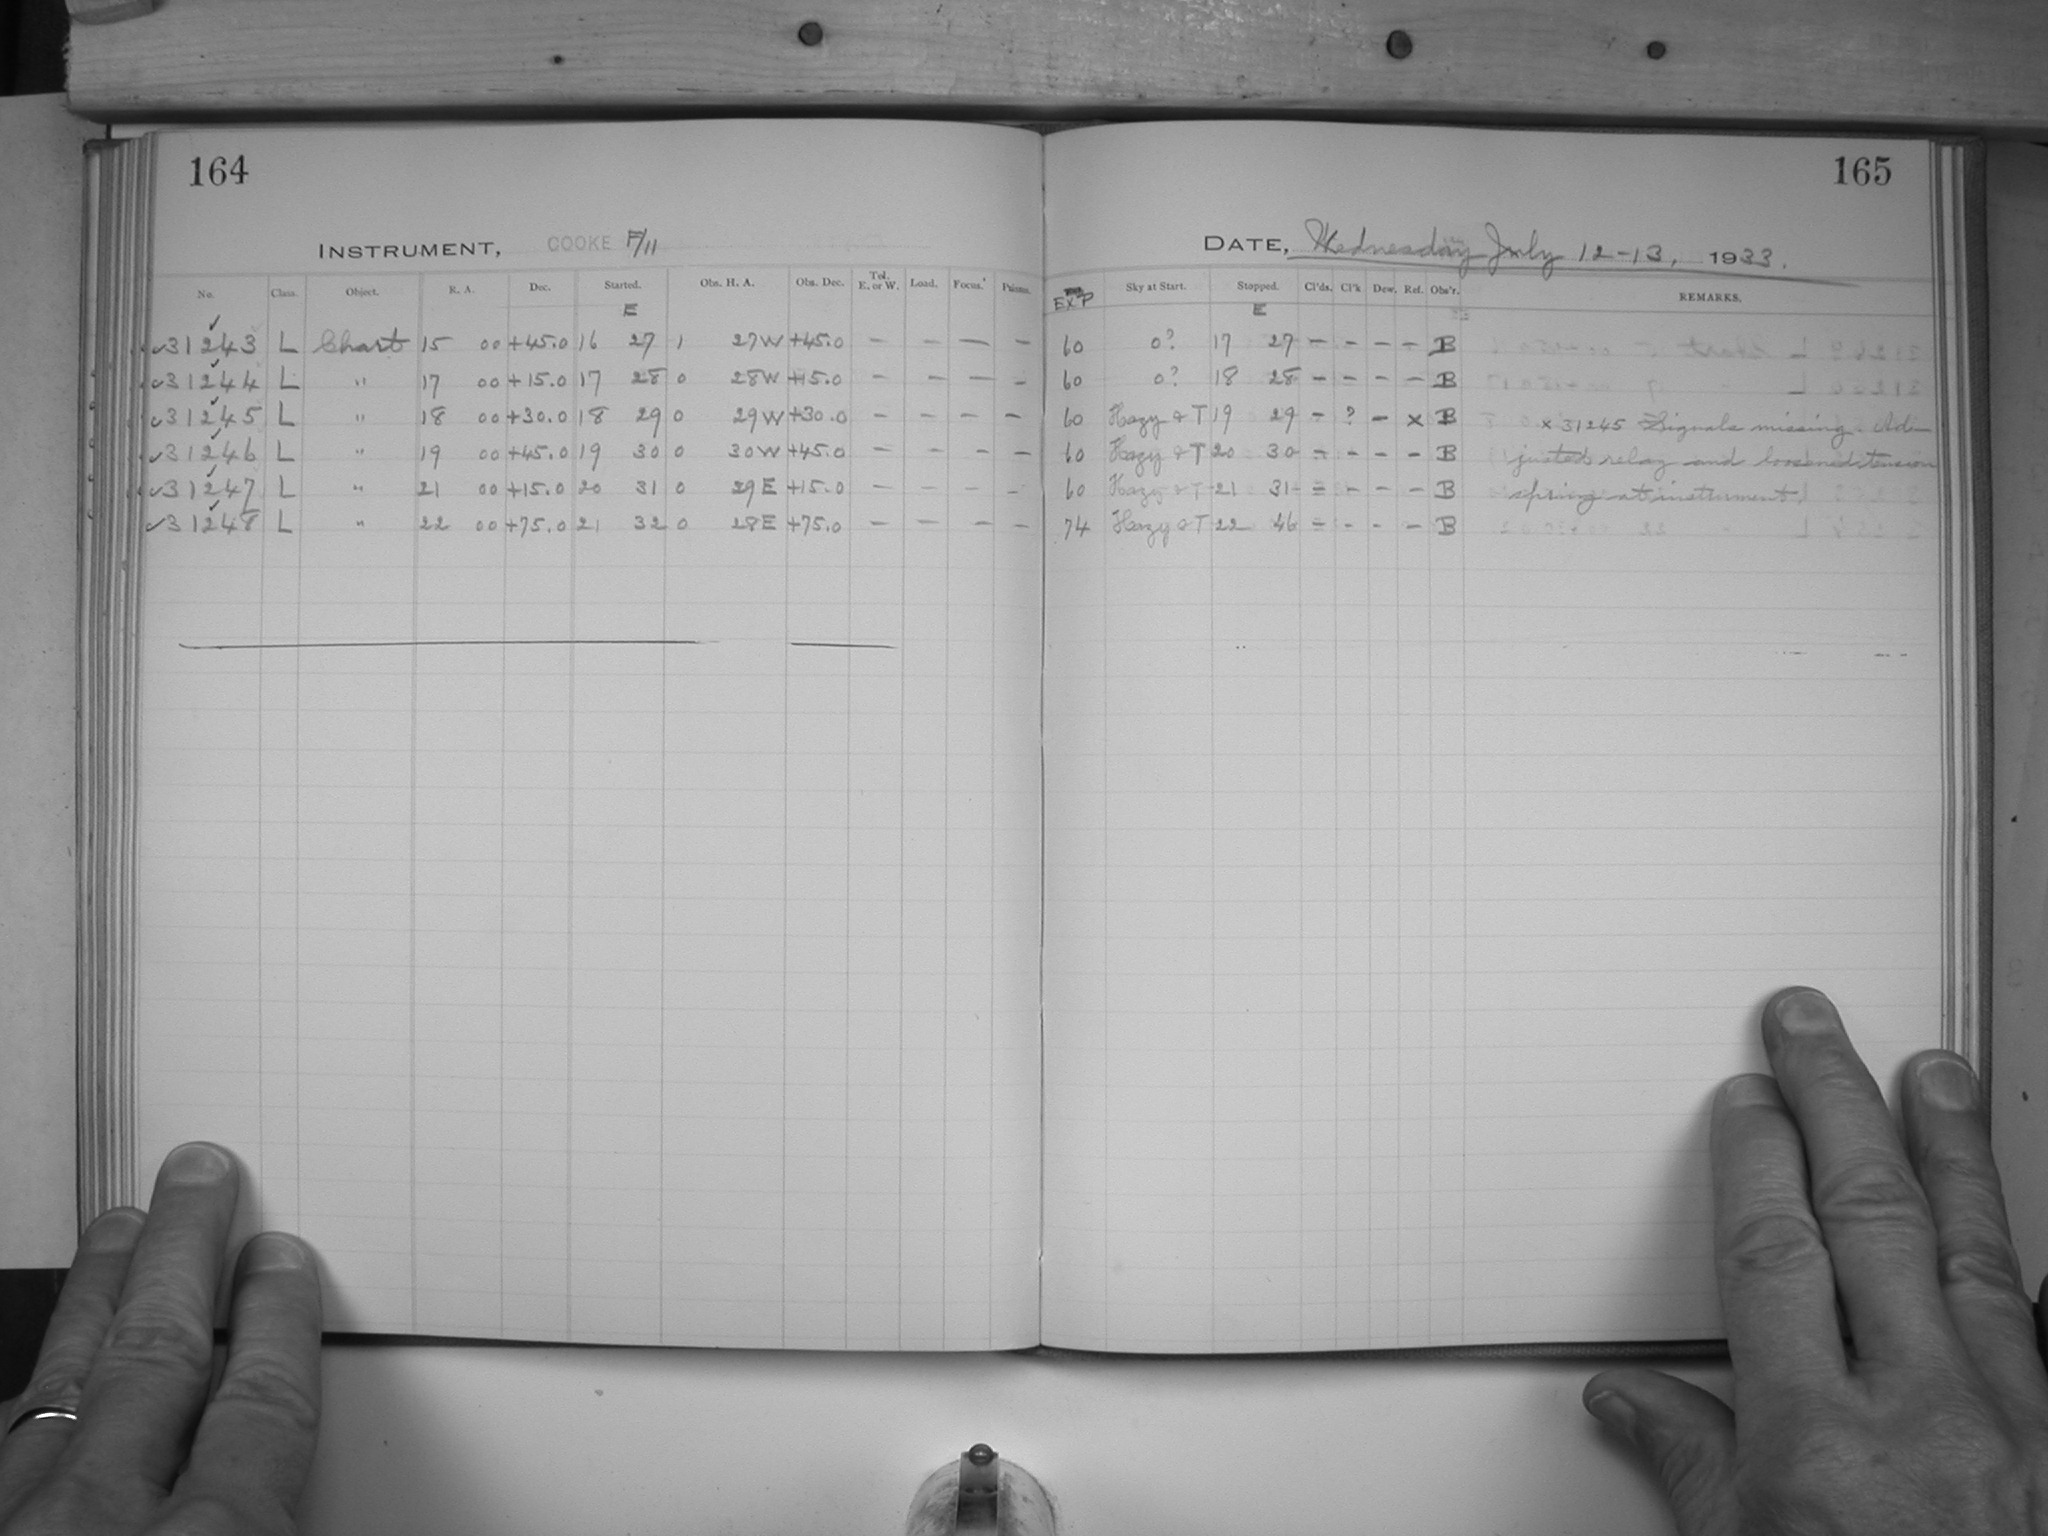 164
165
INSTRUMENT, COOKE F/11
DATE, Wednesday July 12-13, 1933.
No. Class. Object. R. A. Dec. Started. Obs. H. A. Obs. Dec. Tel. E. or W. Load. Focus. EXP Sky at Start. Stopped. Cl'ds. Cl'k Dew. Ref. Obs'r. REMARKS.
E E
✓31243 L Chart 15 00 +45.0 16 27 1 27W +45.0 — — — — 60 0? 17 27 — — — — B
✓31244 L " 17 00 +15.0 17 28 0 28W +15.0 — — — — 60 0? 18 28 — — — — B
✓31245 L " 18 00 +30.0 18 29 0 29W +30.0 — — — — 60 Hazy & T 19 29 — ? — x B x 31245 Signals missing. Ad-
✓31246 L " 19 00 +45.0 19 30 0 30W +45.0 — — — — 60 Hazy & T 20 30 — — — — B justed relay and loosened tension
✓31247 L " 21 00 +15.0 20 31 0 29E +15.0 — — — — 60 Hazy & T 21 31 — — — — B spring at instrument.
✓31248 L " 22 00 +75.0 21 32 0 28E +75.0 — — — — 74 Hazy & T 22 46 — — — — B